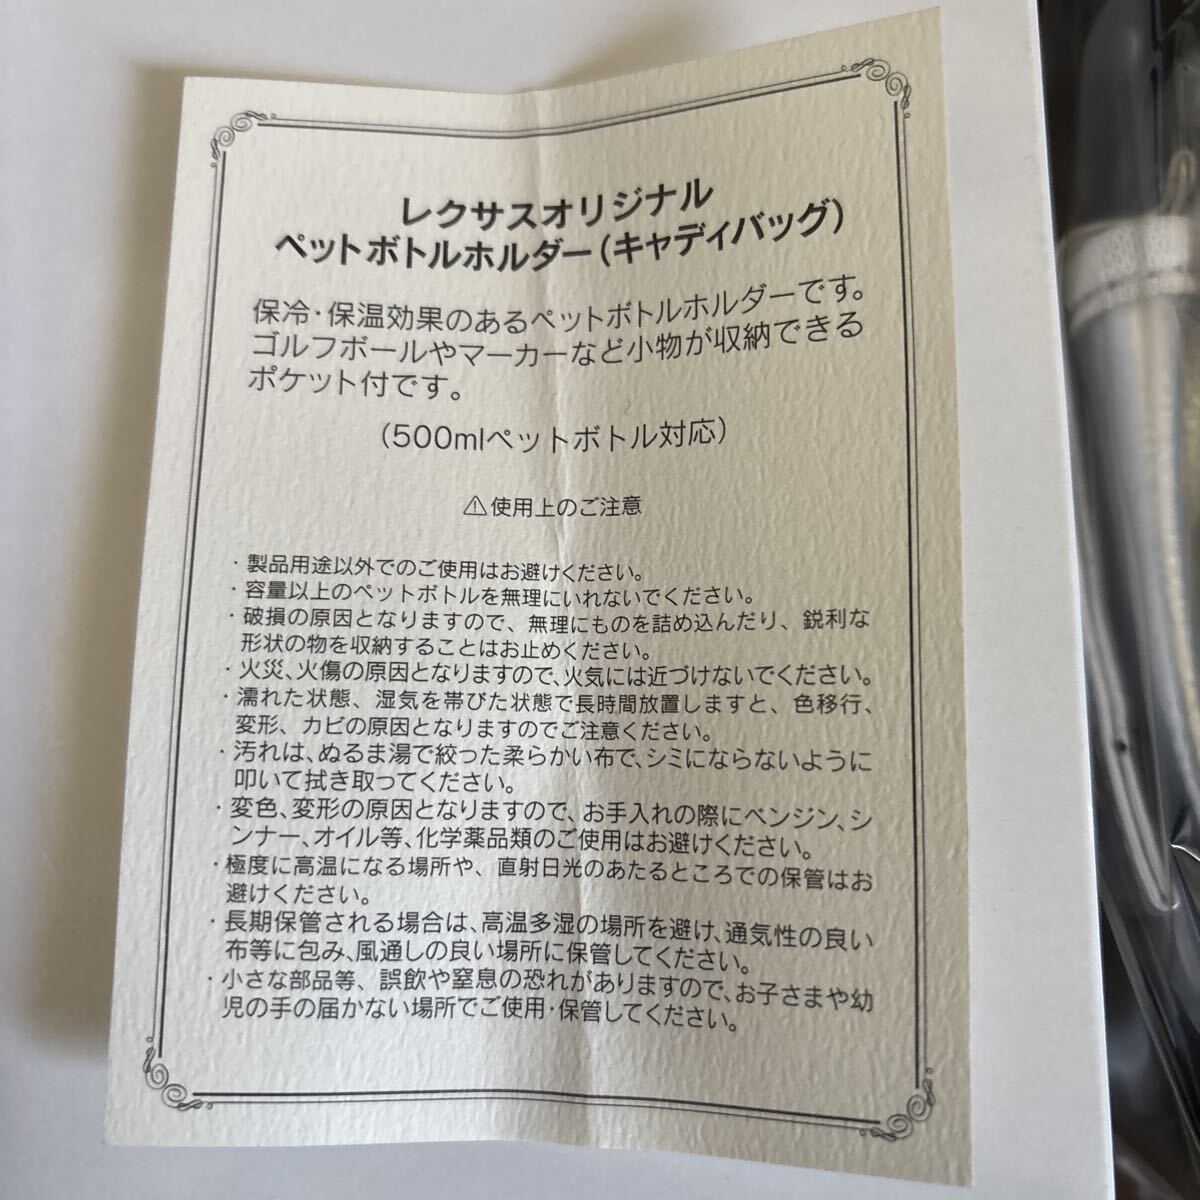 レクサスオリジナル
ペットボトルホルダー(キャディバッグ)
保冷・保温効果のあるペットボトルホルダーです。
ゴルフボールやマーカーなど小物が収納できる
ポケット付です。
(500mlペットボトル対応)
⚠使用上のご注意
・製品用途以外でのご使用はお避けください。
・容量以上のペットボトルを無理にいれないでください。
・破損の原因となりますので、無理にものを詰め込んだり、鋭利な
形状の物を収納することはお止めください。
・火災、火傷の原因となりますので、火気には近づけないでください。
・濡れた状態、湿気を帯びた状態で長時間放置しますと、色移行、
変形、カビの原因となりますのでご注意ください。
・汚れは、ぬるま湯で絞った柔らかい布で、シミにならないように
叩いて拭き取ってください。
・変色、変形の原因となりますので、お手入れの際にベンジン、シ
ンナー、オイル等、化学薬品類のご使用はお避けください。
・極度に高温になる場所や、直射日光のあたるところでの保管はお
避けください。
・長期保管される場合は、高温多湿の場所を避け、通気性の良い
布等に包み、風通しの良い場所に保管してください。
・小さな部品等、誤飲や窒息の恐れがありますので、お子さまや幼
児の手の届かない場所でご使用・保管してください。